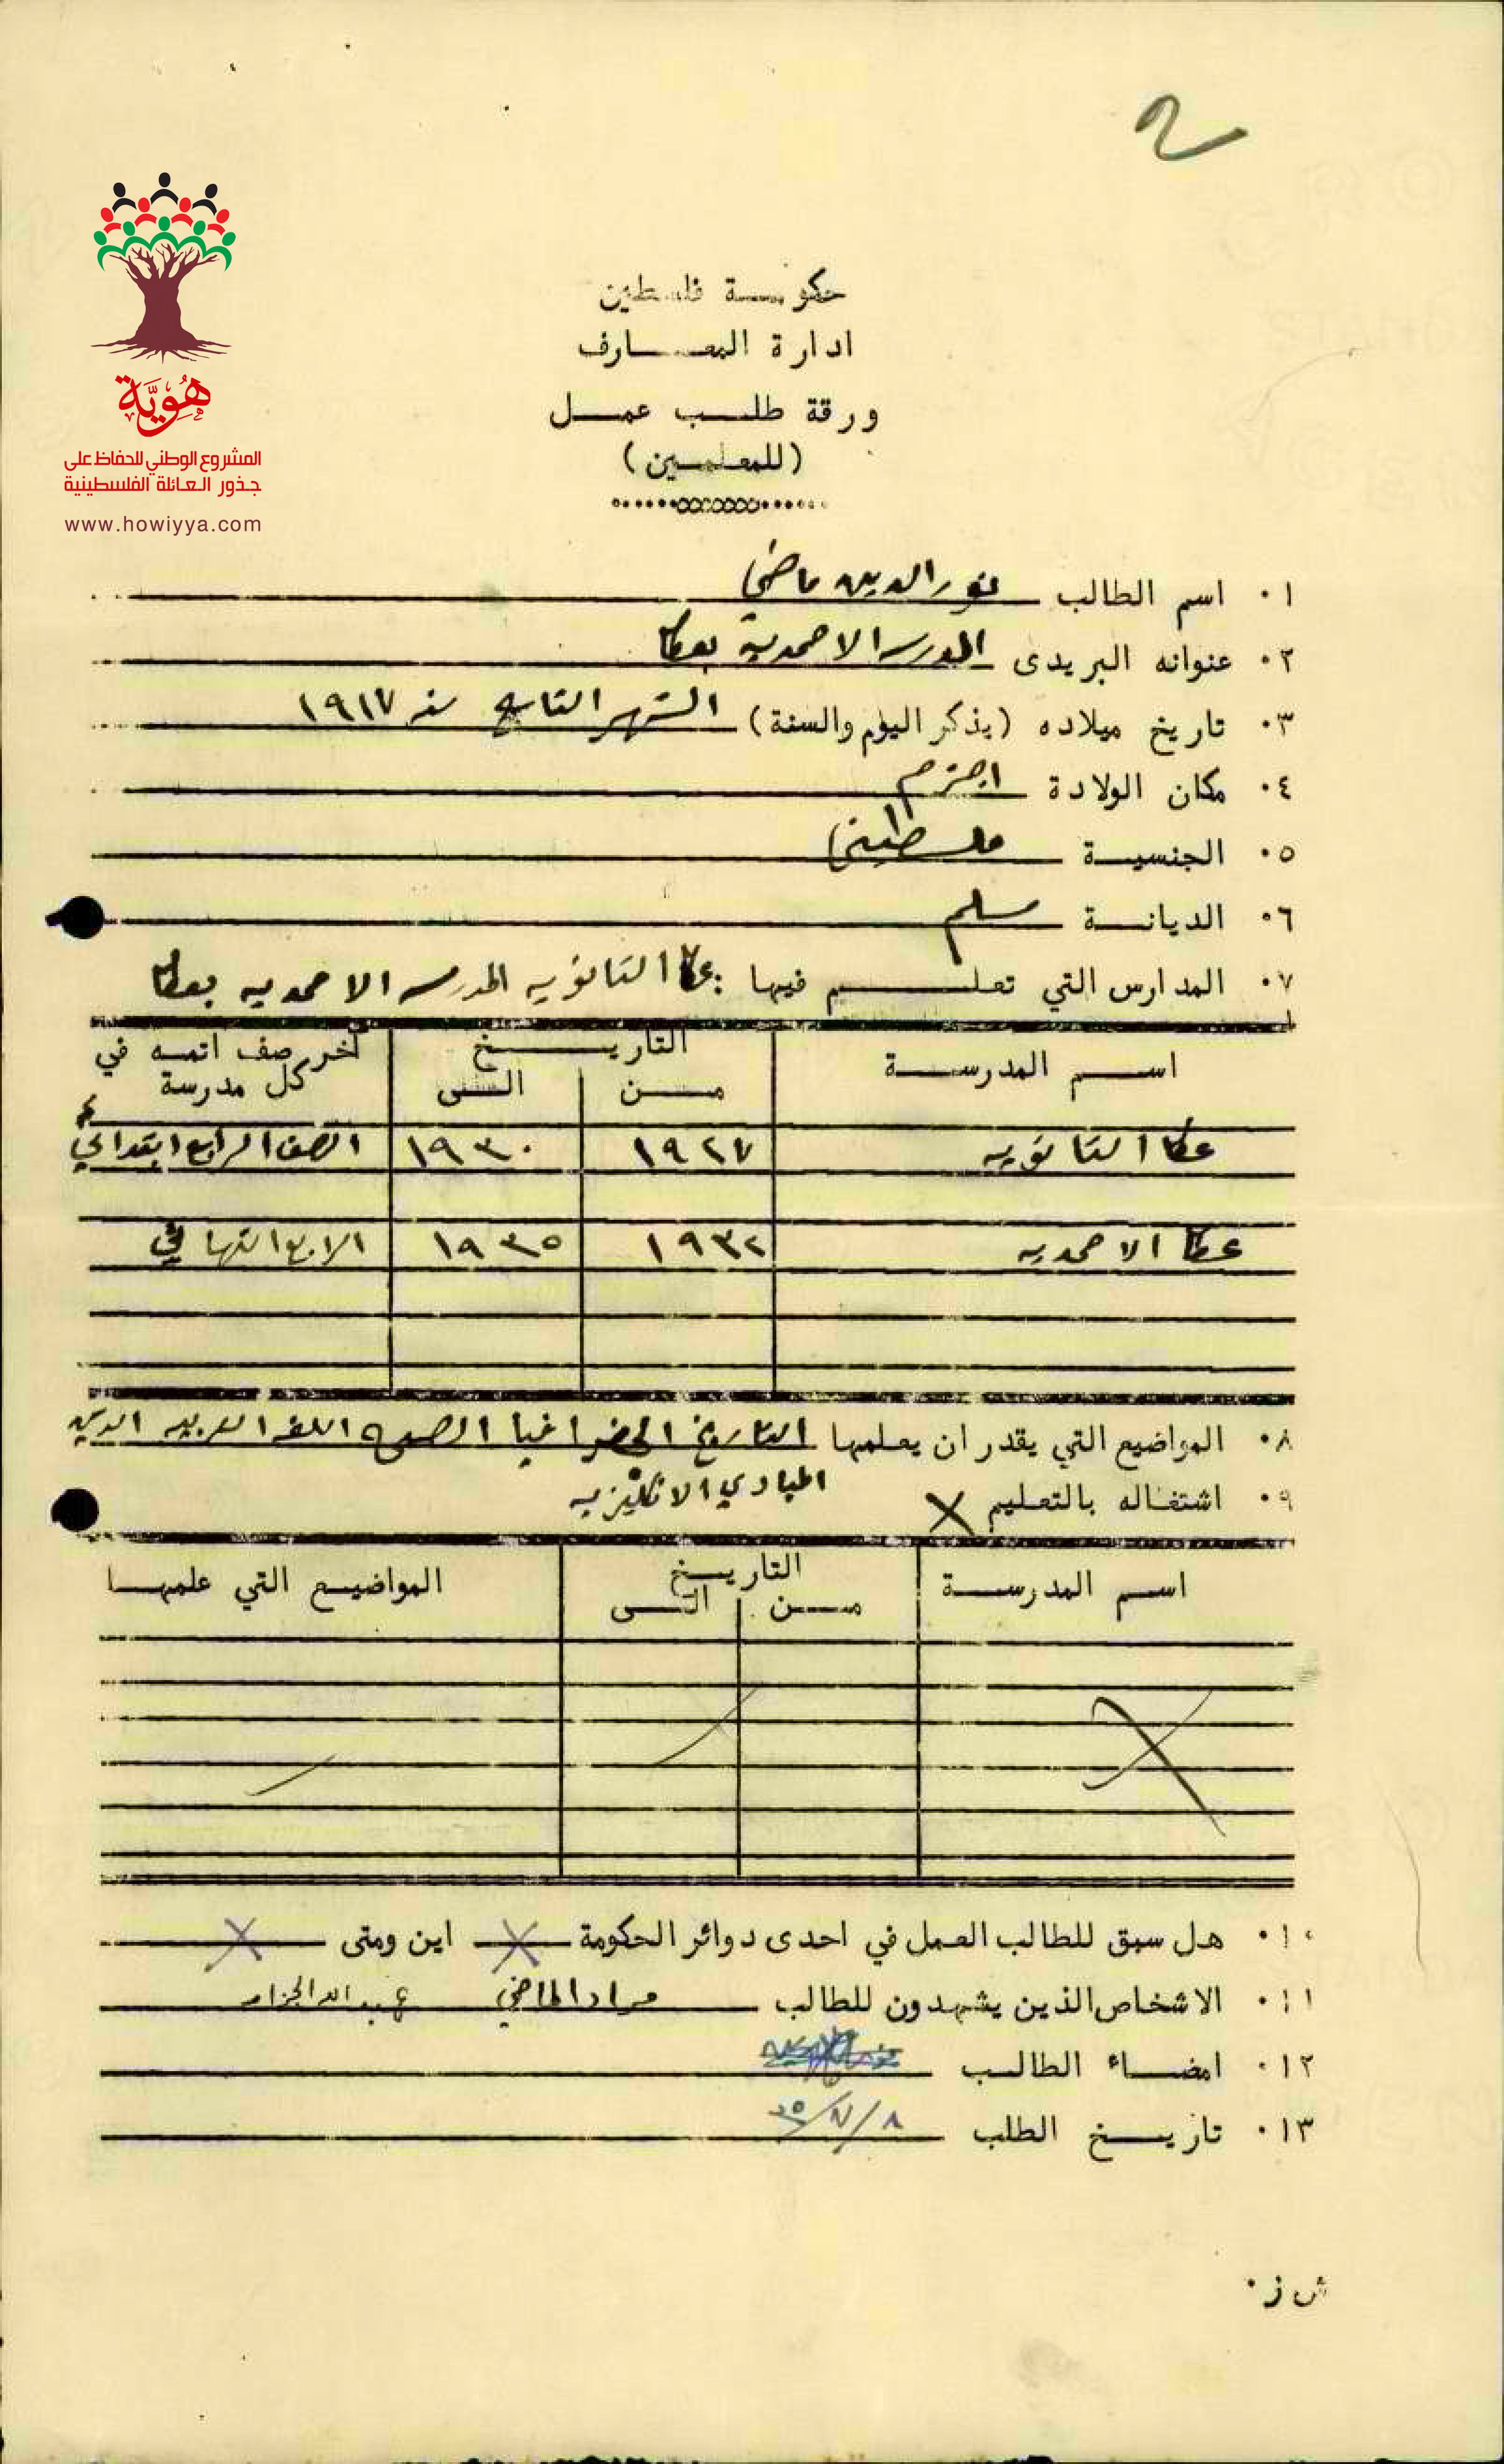 ٢
هُوِيَّة
المشروع الوطني للحفاظ على
جذور العائلة الفلسطينية
www.howiyya.com
حكومة فلسطين
ادارة المعارف
ورقة طلب عمل
(للمعلمين)
١٠ اسم الطالب نور الدين ماضي
٢٠ عنوانه البريدى المدرسه الاحمدية بعكا
٣٠ تاريخ ميلاده (يذكر اليوم والسنة) الشهر التاسع سنه ١٩١٧
٤٠ مكان الولادة اجزم
٥٠ الجنسية فلسطيني
٦٠ الديانة مسلم
٧٠ المدارس التي تعلم فيها : عكا الثانويه المدرسه الاحمديه بعكا
اسم المدرسة التاريخ آخر صف اتمه في
من الى كل مدرسة
عكا الثانويه ١٩٢٧ ١٩٣٠ الصف الرابع ابتدائي
عكا الاحمديه ١٩٣٢ ١٩٣٥ الرابع انتهائي
٨٠ المواضيع التي يقدر ان يعلمها التاريخ الجغرافيا الصحه اللغه العربيه الدين
المبادي الانكليزيه
٩٠ اشتغاله بالتعليم X
اسم المدرسة التاريخ المواضيع التي علمها
من الى
١٠٠ هل سبق للطالب العمل في احدى دوائر الحكومة X اين ومتى X
١١٠ الاشخاص الذين يشهدون للطالب مراد الماضي عبد الله الجزار
١٢٠ امضاء الطالب
١٣٠ تاريخ الطلب ٨/٧/٣٥
ش ز٠